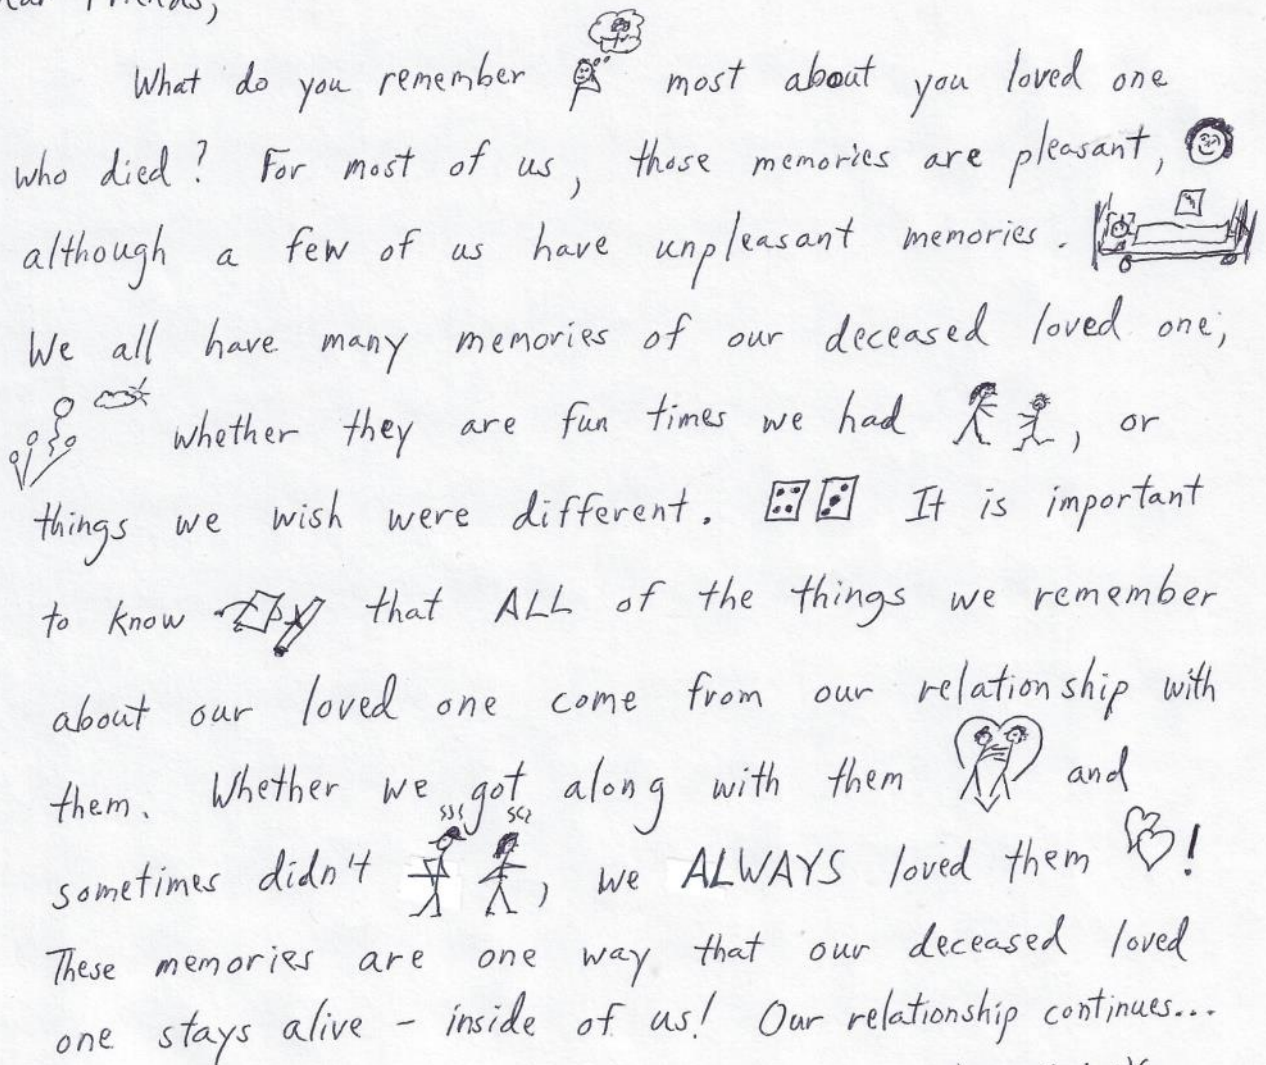 Friends,
What do you remember most about you loved one
who died? For most of us, those memories are pleasant,
although a few of us have unpleasant memories.
We all have many memories of our deceased loved one,
whether they are fun times we had, or
things we wish were different. It is important
to know that ALL of the things we remember
about our loved one come from our relationship with
them. Whether we got along with them and
sometimes didn't, we ALWAYS loved them!
These memories are one way that our deceased loved
one stays alive - inside of us! Our relationship continues...